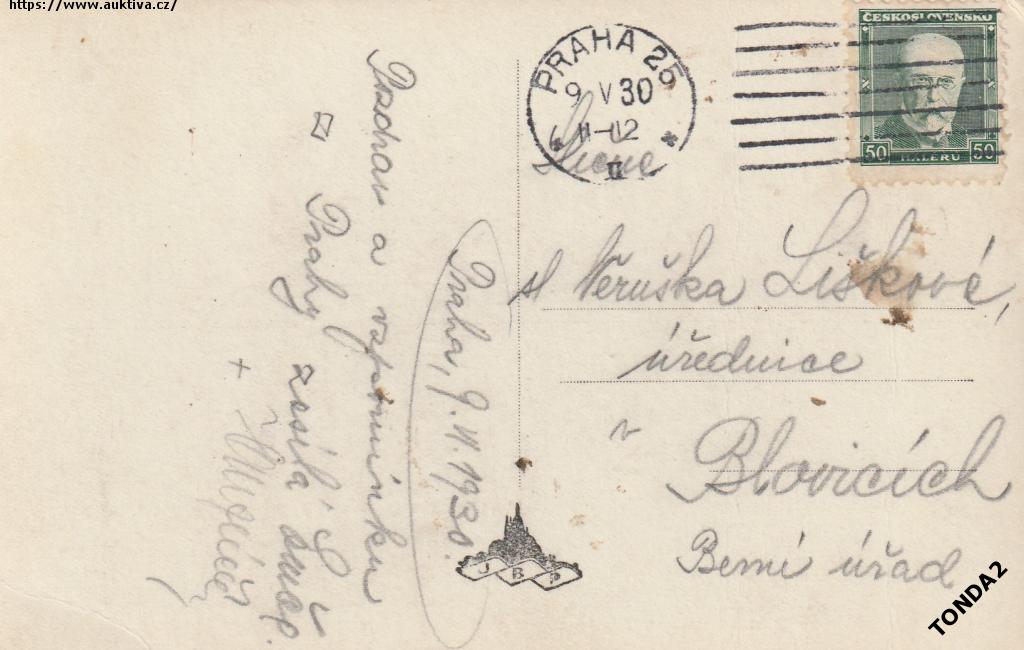 https://www.auktiva.cz/
ČESKOSLOVENSKO
50 HALÉŘŮ 50
PRAHA 25
9 V 30
11-12
II
Slečně
sl Věruška Lišková,
úřednice
v Blovicích
Berní úřad
Pozdrav a vzpomínku
z Prahy zasílá
Praha, 9.V.1930.
J B P
TONDA2